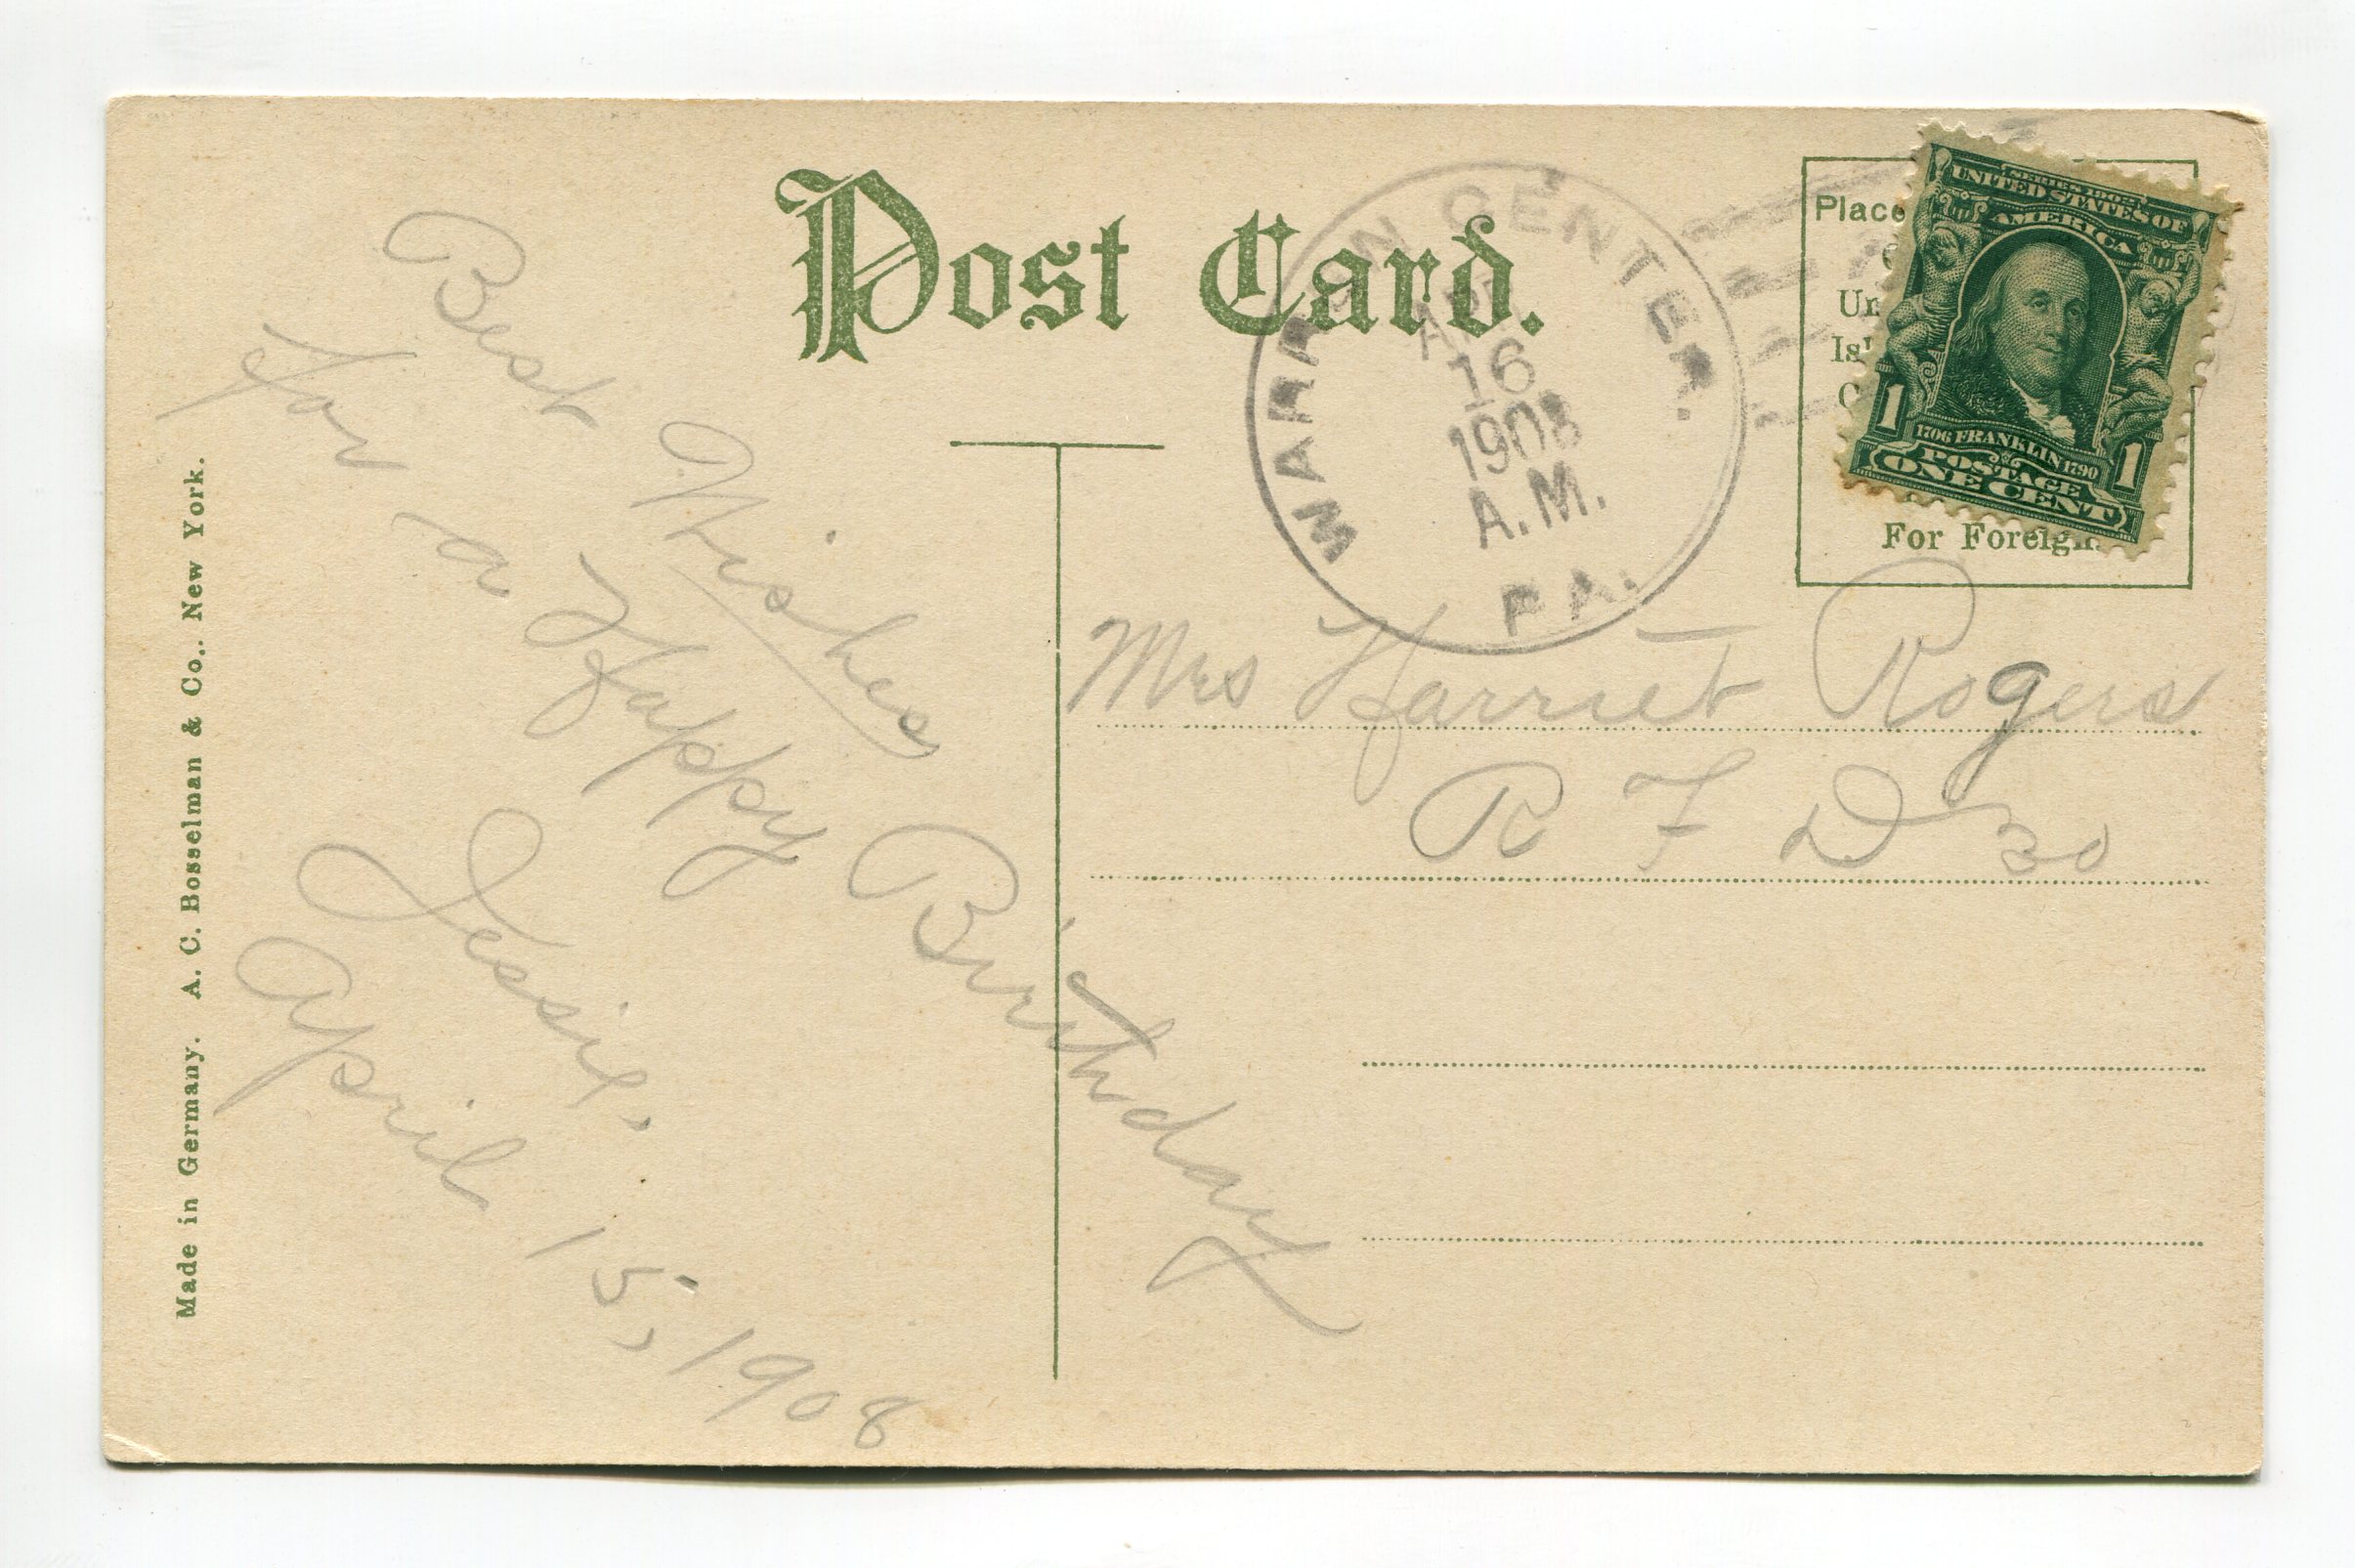 Post Card.
WARREN CENTER.
APR
16
1908
A.M.
PA.
Place
Un
Is'
For Foreign
SERIES 1902
UNITED STATES OF
AMERICA
1706 FRANKLIN 1790
POSTAGE
1 ONE CENT 1
Best Wishes
for a Happy Birthday
Jessie.
April 15, 1908
Mrs Harriet Rogers
R F D 30
Made in Germany. A. C. Bosselman & Co., New York.